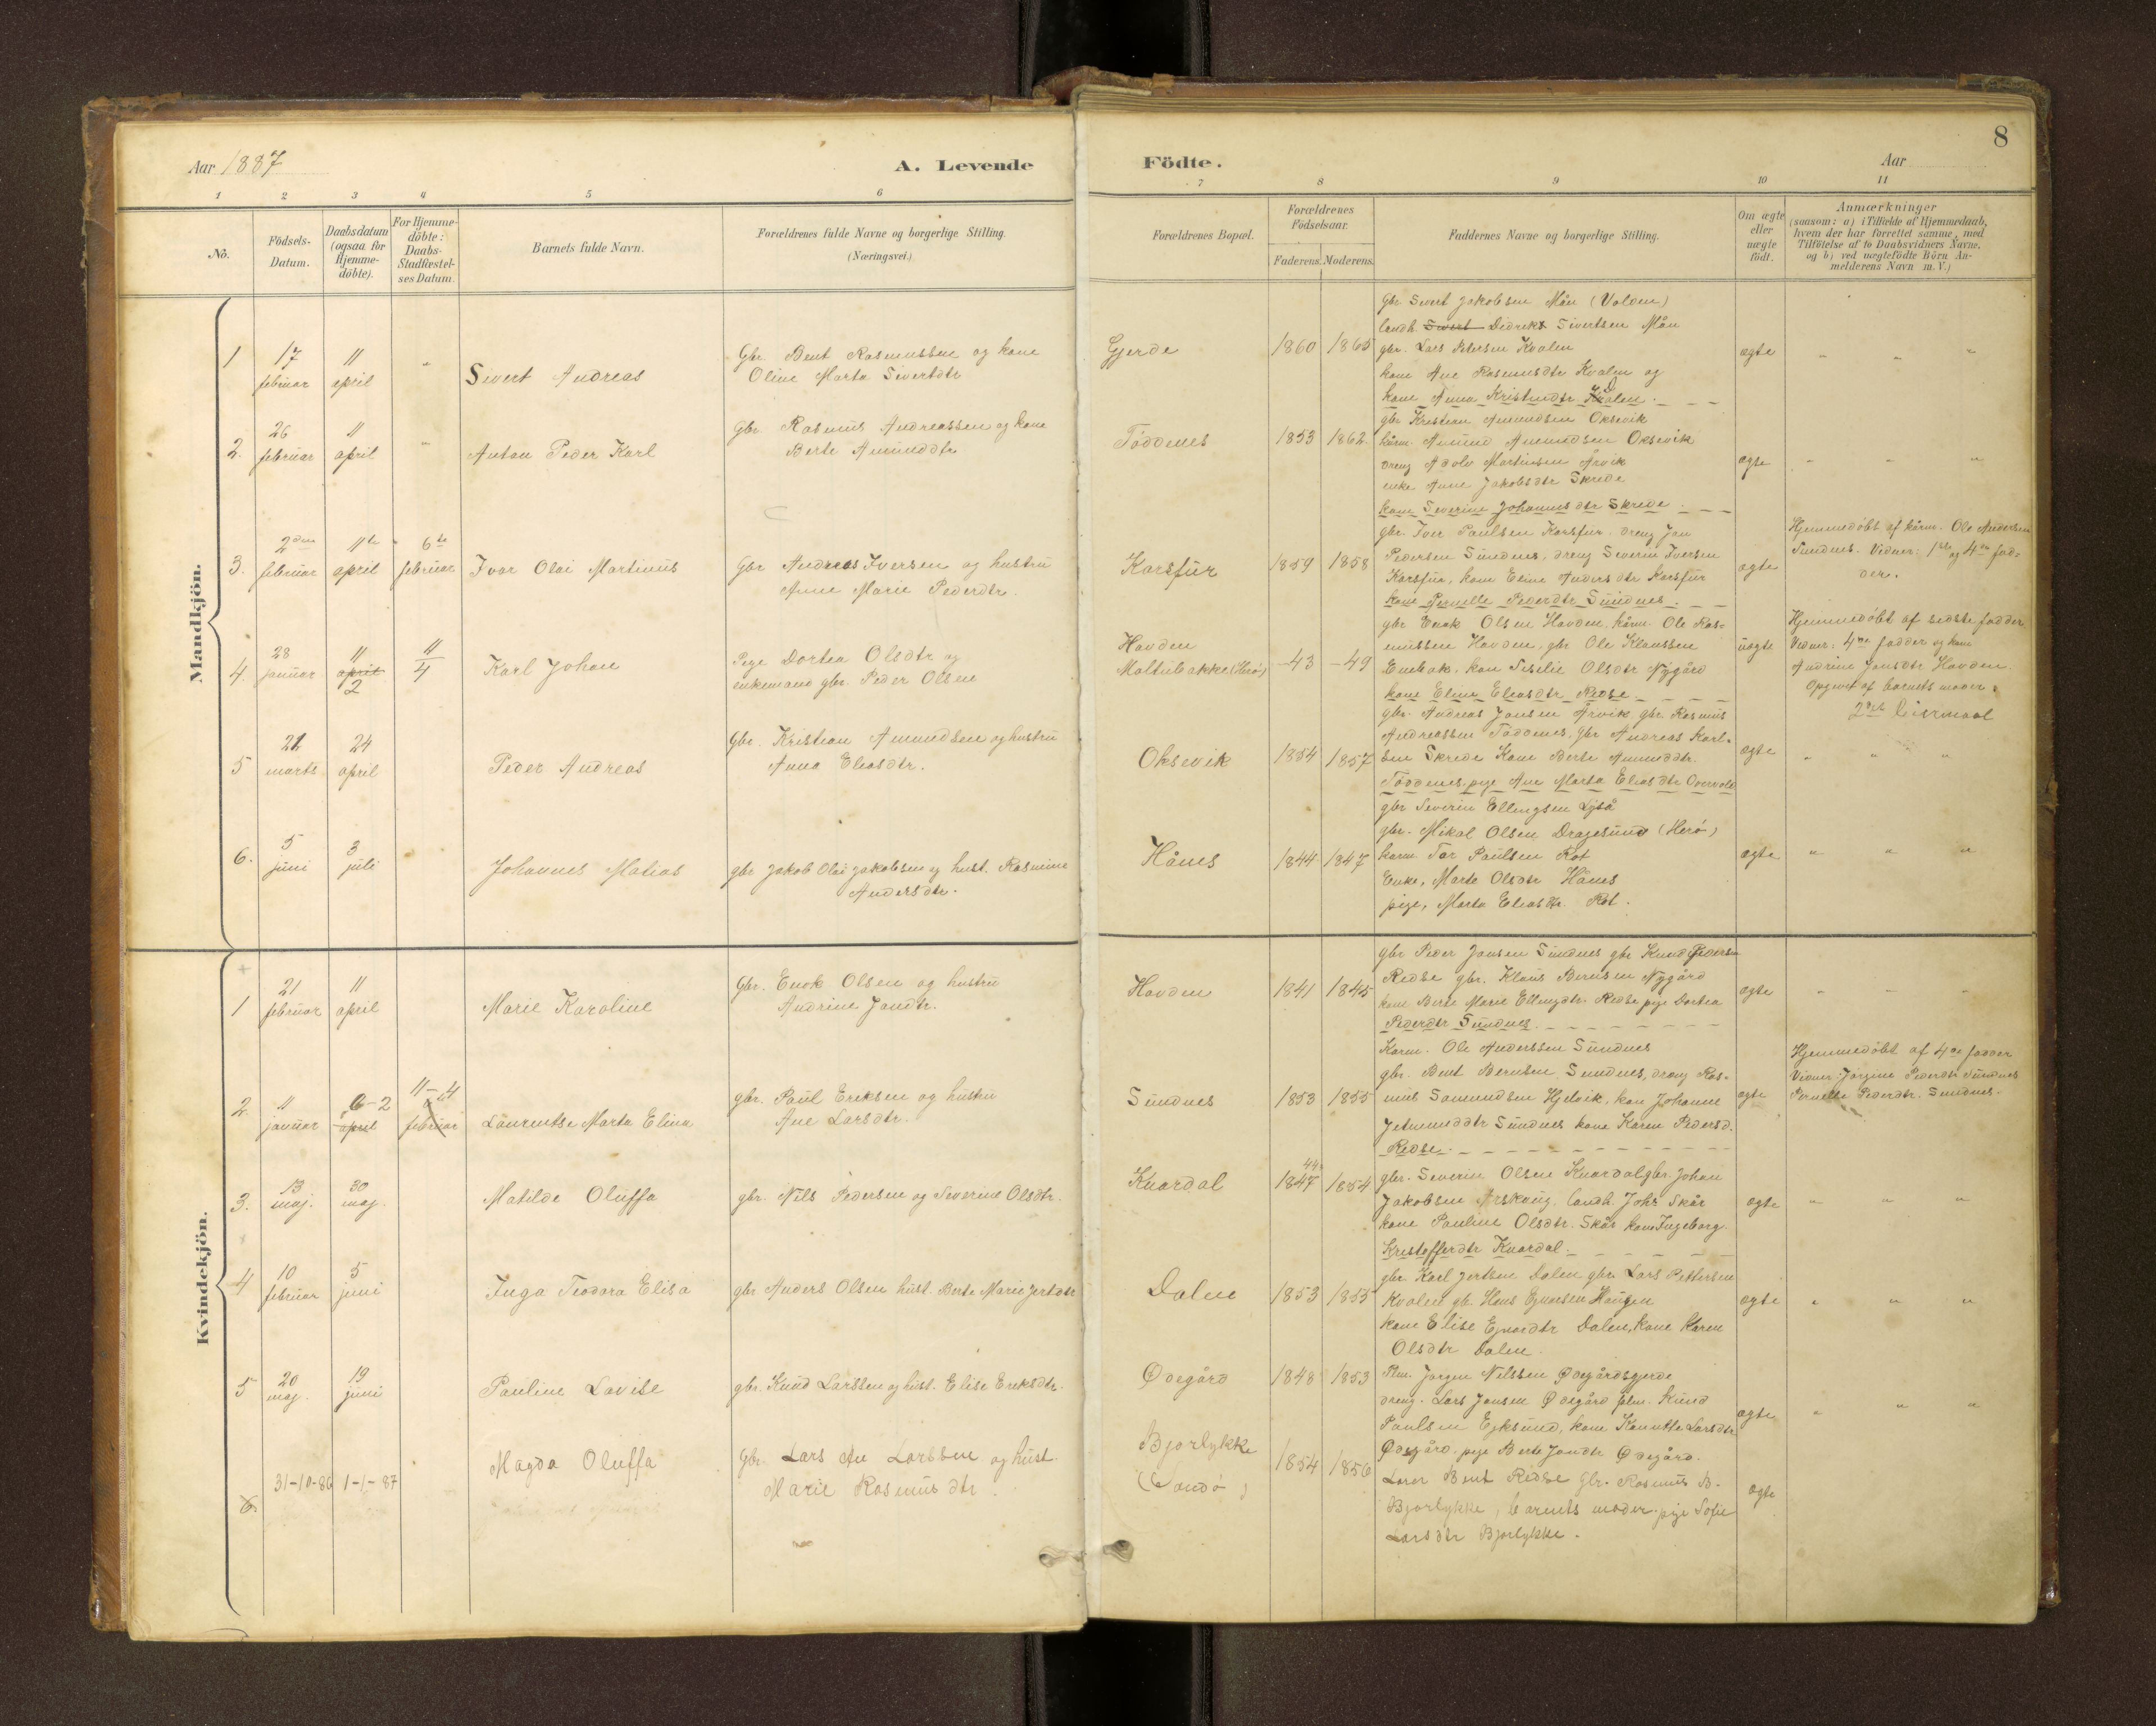 8
Aar 1887
A. Levende
Födte.
Aar
1 2 3 4 5 6 7 8 9 10 11
No.
Födsels-
Datum.
Daabsdatum
(ogsaa for
Hjemme-
döbte).
For Hjemme-
döbte:
Daabs-
Stadfæstel-
ses Datum.
Barnets fulde Navn.
Forældrenes fulde Navne og borgerlige Stilling.
(Næringsvei.)
Forældrenes Bopæl.
Forældrenes
Födselsaar.
Faderens. Moderens.
Faddernes Navne og borgerlige Stilling.
Om ægte
eller
uægte
födt.
Anmærkninger
(saasom: a) i Tilfælde af Hjemmedaab,
hvem der har forrettet samme, med
Tilföielse af to Daabsvidners Navne.
og b) ved uægtefödte Börn An-
melderens Navn m. V.)
Mandkjön.
1
17
februar
11
april
"
Sivert Andreas
Gbr Bent Rasmussen og kone
Oline Marta Sivertdtr
Gjerde
1860 1865
Gbr Sivert Jakobsen Mån (Volden)
landh. Sivert Didrek Sivertsen Mån
gbr. Lars Petersen Kvalen
kone Ane Rasmusdtr Kvalen og
kone Anna Kristendtr
ægte
" " "
2.
26
februar
11
april
"
Anton Peder Karl
Gbr Rasmus Andreassen og kone
Berte Amunddtr
Töddenes
1853 1862
gbr Kristian Amundsen Oksevik
kårm. Amund Amundsen Oksevik
dreng Adolv Martinsen Årvik
enke Anne Jakobsdtr Skrede
kone Severine Johannesdtr Skrede
ægte
" " "
3.
2den
februar
11te
april
6te
februar
Ivar Olai Martinus
Gbr Andreas Iversen og hustru
Anne Marie Pederdtr.
Korsfur
1859 1858
gbr. Iver Paulsen Korsfur, dreng Jan
Pedersen Sundnes, dreng Severin Iversen
Korsfur, kone Eline Andersdtr Korsfur
kone Pernelle Pederdtr Sundnes
ægte
Hjemmedöbt af kårm. Ole Andersen
Sundnes. Vidner: 1ste og 4de fad-
der.
4.
28
januar
11
april
2
11
4
Karl Johan
Pige Dortea Olsdtr og
enkemand gbr. Peder Olsen
Havden
Moltubakke (Herö)
-43 -49
gbr Enok Olsen Havden, kårm. Ole Ras-
mussen Havden, gbr Ole Klaussen
Enebak, kone Seselie Olsdtr Nygård
kone Eline Eliasdtr Redse
uægte
Hjemmedöbt af sidste fadder
Vidner: 4de fadder og kone
Andrine Jansdtr Havden.
Opgivet af barnets moder.
2det leiermaal
5
21
marts
24
april
Peder Andreas
Gbr. Kristian Amundsen og hustru
Anna Eliasdtr.
Oksevik
1854 1857
gbr. Andreas Jansen Årvik gbr Rasmus
Andreassen Töddenes, gbr Andreas Karl-
sen Skrede Kone Berte Amunddtr.
Töddenes, pige Ane Marta Eliasdtr Overvold
ægte
" " "
6.
5
juni
3
juli
Johannes Matias
gbr Jakob Olai Jakobsen og hust. Rasmine
Andersdtr.
Hånes
1844 1847
gbr Severin Ellingsen Lyså
gbr. Mikal Olsen Dragesund (Herö)
karm. Tor Paulsen Röt
Enke, Marte Olsdtr Hånes
pige, Marta Eliasdtr. Röt.
ægte
" " "
Kvindekjön.
1
21
februar
11
april
Marie Karoline
Gbr. Enok Olsen og hustru
Andrine Jandtr.
Havden
1841 1845
gbr Peder Jansen Sundnes gbr Knud Pedersen
Redse gbr. Klaus Berntsen Nygård
kone Berte Marie Ellingdtr. Redse pige Dortea
Pederdtr Sundnes
ægte
" " "
2.
11
januar
6-2
april
11-4
februar
Laurentse Marta Elina
gbr. Paul Eriksen og hustru
Ane Larsdtr.
Sundnes
1853 1855
Karm. Ole Anderssen Sundnes
gbr. Bent Berntsen Sundnes, dreng Ras-
mus Samundsen Hjelvik, kone Johanne
Jetmunddtr Sundnes kone Karen Pedersd.
Redse
ægte
Hjemmedöbt af 4de fadder
Vidner Jörgine Pederdtr Sundnes
Pernelle Pederdtr. Sundnes.
3.
13
maj.
30
maj.
Matilde Oluffa
gbr. Nils Pedersen og Severine Olsdtr.
Knardal
44
1847 1854
gbr. Severin Olsen Knardal gbr. Johan
Jakobsen Årskaug. landh. Johs Skår
kone Pauline Olsdtr. Skår kone Ingeborg
Kristofferdtr Knardal
ægte
" " "
4
10
februar
5
juni
Inga Teodora Elisa
gbr Anders Olsen hust. Berte Marie Jertdtr
Dalen
1853 1855
gbr. Karl Jertsen Dalen gbr. Lars Pettersen
Kvalen gb. Hans Ejnarsen Haugen
kone Elise Ejnardtr Dalen, kone Karen
Olsdtr Dalen
ægte
" " "
5
20
maj.
19
juni
Pauline Lovise
gbr. Knud Larssen og hust. Elise Eriksdtr.
Ödegård
1848 1853
Plm. Jörgen Nilssen Ödegårdsgjerde
dreng. Lars Jansen Ödegård film. Knud
Paulsen Eiksund, kone Hanette Larsdtr
Ödegård. pige Berte Jandtr Ödegård.
ægte
" " "
6.
31-10-86
1-1-87
Magda Oluffa
Gbr. Lars An Larssen og hust.
Marie Rasmusdtr.
Bjorlykke
(Sandö)
1854 1856
Lærer Bent Redse Gbr. Rasmus B.
Bjorlykke, barnets moder pige Sofie
Larsdtr Bjorlykke.
ægte